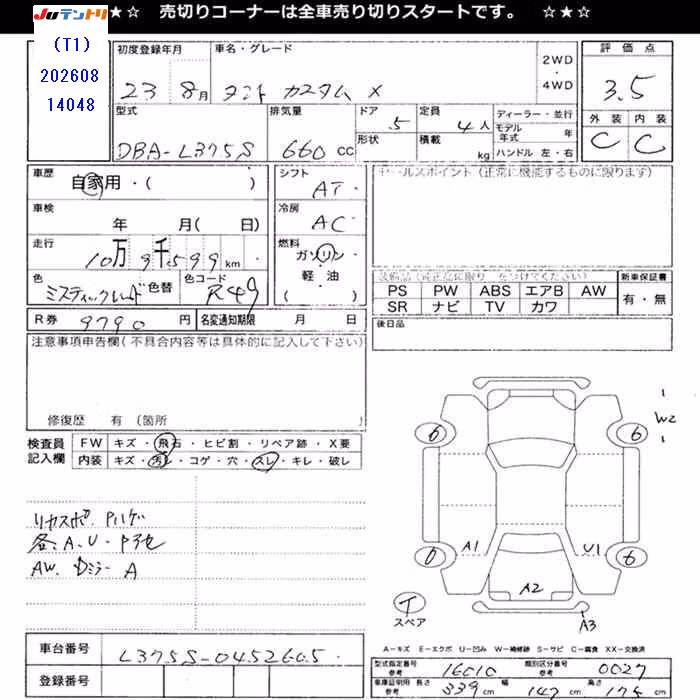 ★☆ 売切りコーナーは全車売り切りスタートです。 ☆★☆
JUテントリ
(T1)
202608
14048
初度登録年月
23 8月
車名・グレード
タント カスタム X
2WD
・
4WD
評価点
3.5
外装 内装
C C
型式
DBA-L375S
排気量
660 CC
ドア
5
形状
定員
4人
積載
kg
ディーラー・並行
モデル年式 年
ハンドル 左・右
車歴
自家用・( )
車検
年 月( 日)
走行
10万9千599km
色
ミスティックレッド
色替
色コード
R49
シフト
AT
冷房
AC
燃料
ガソリン
軽・油
( )
セールスポイント(正常に機能するものに限ります)
装備品(純正品に限り をつけてください)
PS PW ABS エアB AW
SR ナビ TV カワ
新車保証書
有・無
R券 9790円
名変通知期限 月 日
後日品
注意事項申告欄(不具合内容等は具体的に記入して下さい)
修復歴 有(箇所
検査員
記入欄
FW キズ・飛石・ヒビ割・リペア跡・X要
内装 キズ・汚レ・コゲ・穴・スレ・キレ・破レ
リヤスポ. Pハゲ
各:A.U・P子セ
AW. Dミラー A
W2
6 6
6 6
A1 U1
A2
A3
T
スペア
A-キズ E-エクボ U-凹み W-補修跡 S-サビ C-腐食 XX-交換済
車台番号
L375S-0452605
登録番号
型式指定番号
参考
16010
類別区分番号
参考
0027
車庫証明用
参考
長さ 339 cm 幅 147 cm 高さ 175 cm